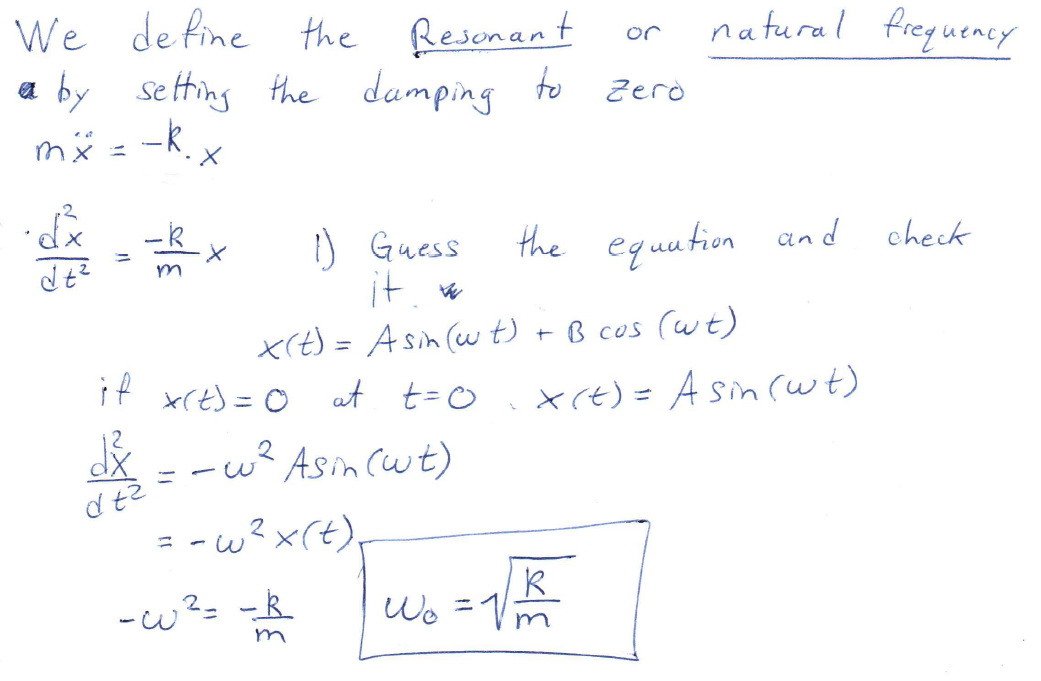 We define the Resonant or natural frequency
by setting the damping to zero
mẍ = -k.x
d²x/dt² = -k/m x 1) Guess the equation and check
it.
x(t) = A sin(ωt) + B cos(ωt)
if x(t)=0 at t=0. x(t) = A sin(ωt)
d²x/dt² = -ω² A sin(ωt)
= -ω² x(t)
-ω² = -k/m ω₀ = √(k/m)